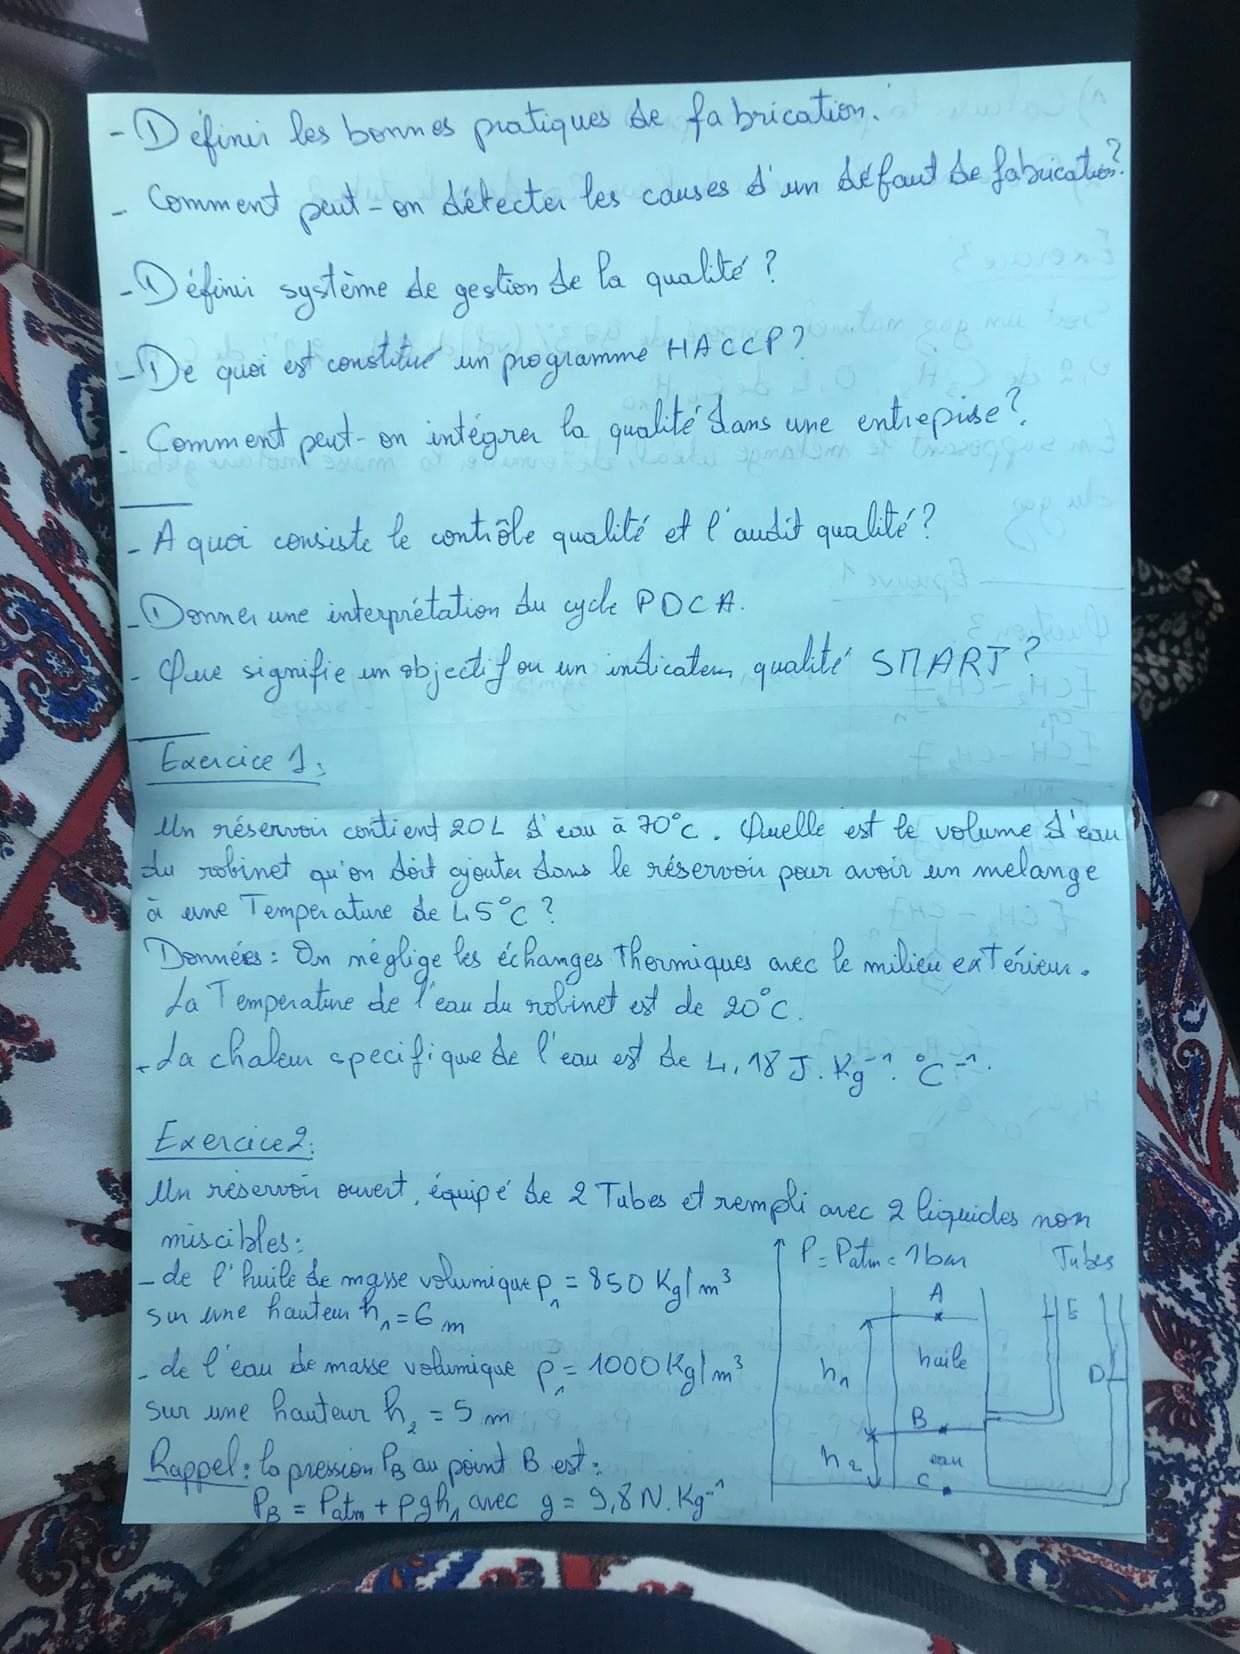 - Définir les bonnes pratiques de fabrication.
- Comment peut-on détecter les causes d'un défaut de fabrication?
- Définir système de gestion de la qualité?
- De quoi est constitué un programme HACCP?
- Comment peut-on intégrer la qualité dans une entrepise?
- A quoi consiste le contrôle qualité et l'audit qualité?
- Donner une interprétation du cycle PDCA.
- Que signifie un objectif ou un indicateur qualité SMART?
Exercice 1:
Un réservoir contient 20L d'eau à 70°C. Quelle est le volume d'eau
du robinet qu'on doit ajouter dans le réservoir pour avoir un mélange
à une Température de 45°C?
Données: On néglige les échanges thermiques avec le milieu extérieur.
La Température de l'eau du robinet est de 20°C.
- La chaleur specifique de l'eau est de 4,18 J.Kg⁻¹.°C⁻¹.
Exercice 2:
Un réservoir ouvert, équipé de 2 Tubes et rempli avec 2 liquides non
miscibles:
- de l'huile de masse volumique ρ₁ = 850 Kg/m³
sur une hauteur h₁ = 6 m
- de l'eau de masse volumique ρ₁ = 1000 Kg/m³
sur une hauteur h₂ = 5 m
Rappel: la pression PB au point B est:
PB = Patm + ρgh₁ avec g = 9,8 N.Kg⁻¹
P = Patm = 1 bar
Tubes
A
E
huile
h₁
D
B
h₂
eau
C